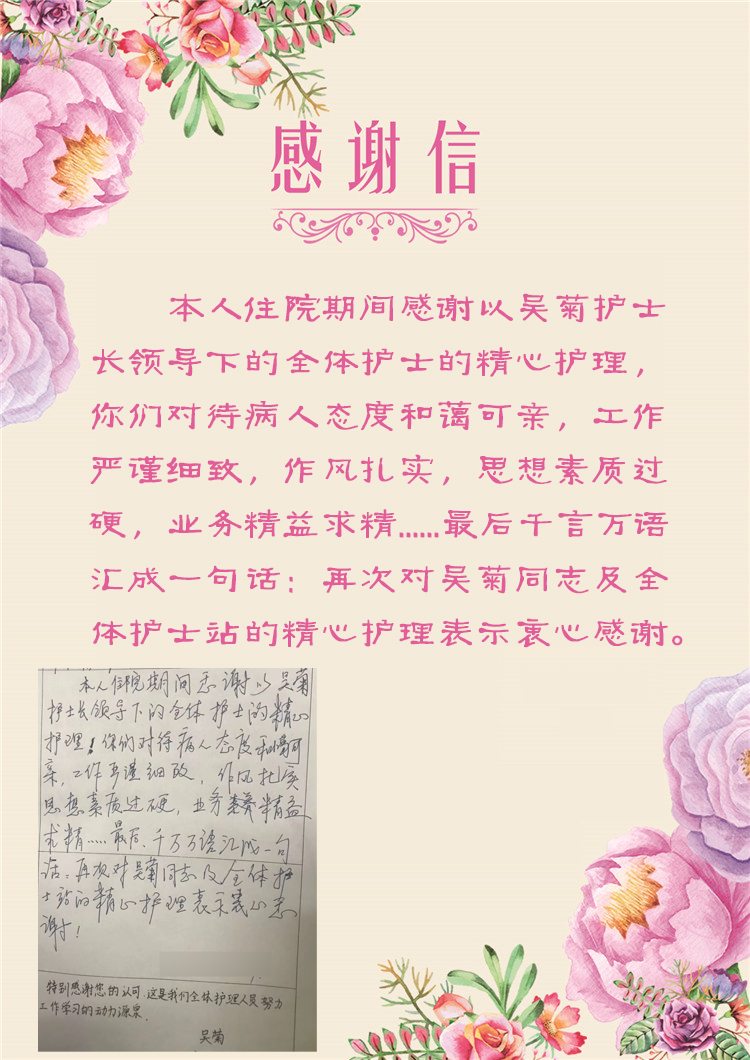 感谢信
本人住院期间感谢以吴菊护士
长领导下的全体护士的精心护理，
你们对待病人态度和蔼可亲，工作
严谨细致，作风扎实，思想素质过
硬，业务精益求精......最后千言万语
汇成一句话：再次对吴菊同志及全
体护士站的精心护理表示衷心感谢。
本人住院期间感谢以吴菊
护士长领导下的全体护士的精心
护理！你们对待病人态度和蔼可
亲，工作严谨细致，作风扎实
思想素质过硬，业务精益
求精……最后，千万万语汇成一句
话：再次对吴菊同志及全体护
士站的精心护理表示衷心感
谢！
特别感谢您的认可，这是我们全体护理人员努力
工作学习的动力源泉。
吴菊